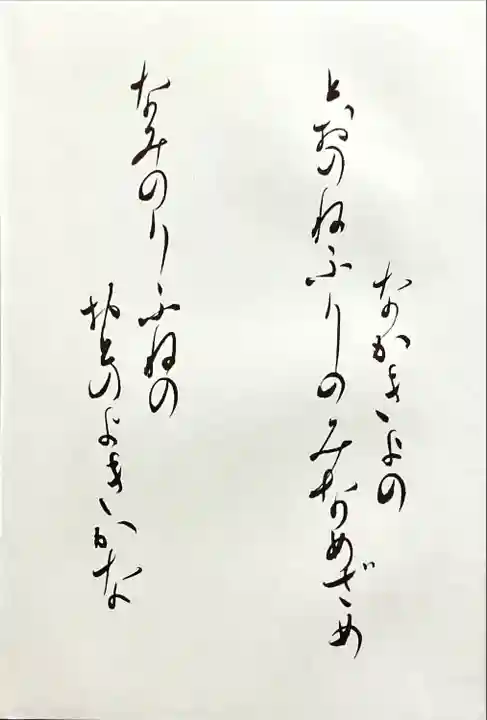 なかきよの
とおのねふりのみなめざめ
なみのりふねの
おとのよきかな